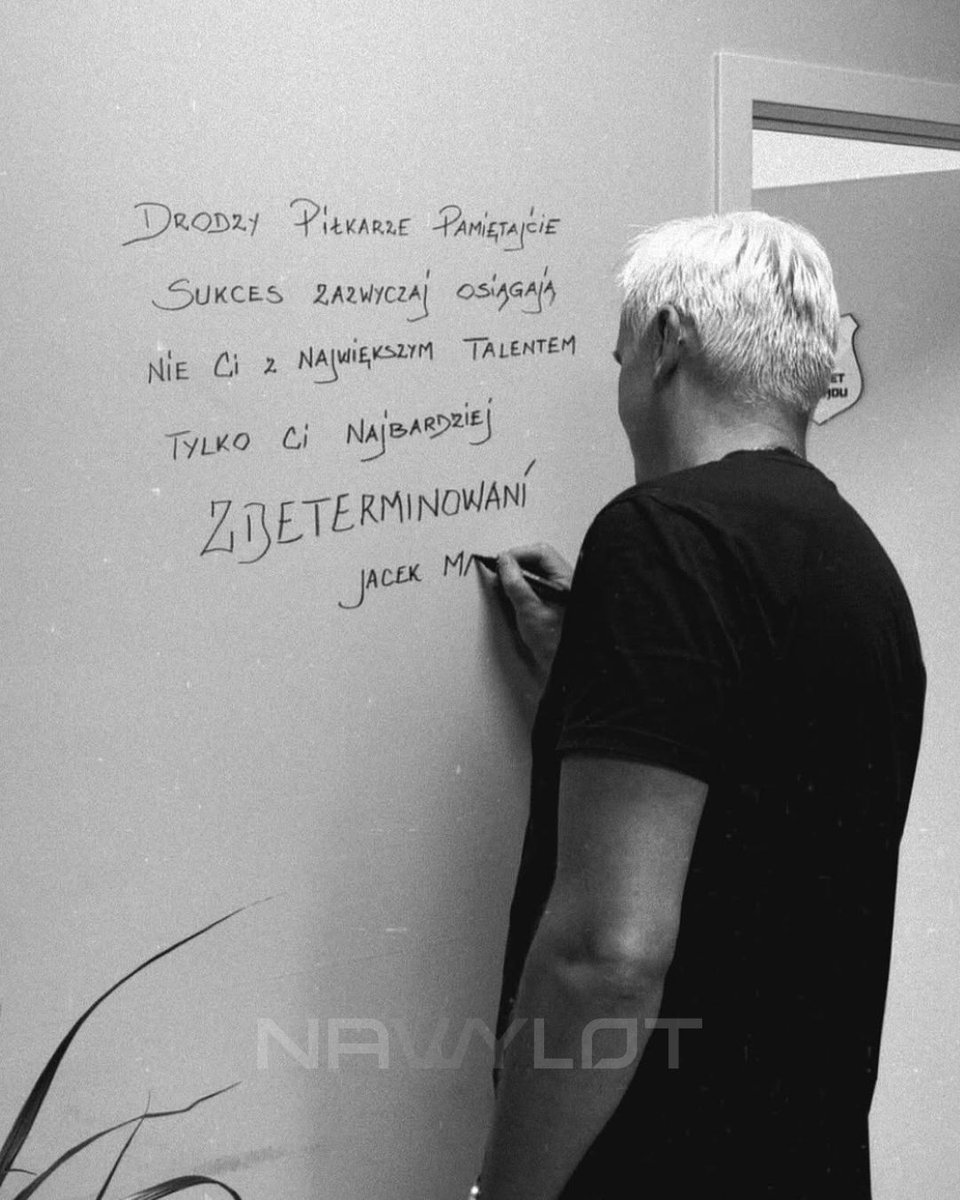 DRODZY PIŁKARZE PAMIĘTAJCIE
SUKCES ZAZWYCZAJ OSIĄGAJĄ
NIE CI Z NAJWIĘKSZYM TALENTEM
TYLKO CI NAJBARDZIEJ
ZDETERMINOWANI
JACEK MA
NAWYLOT